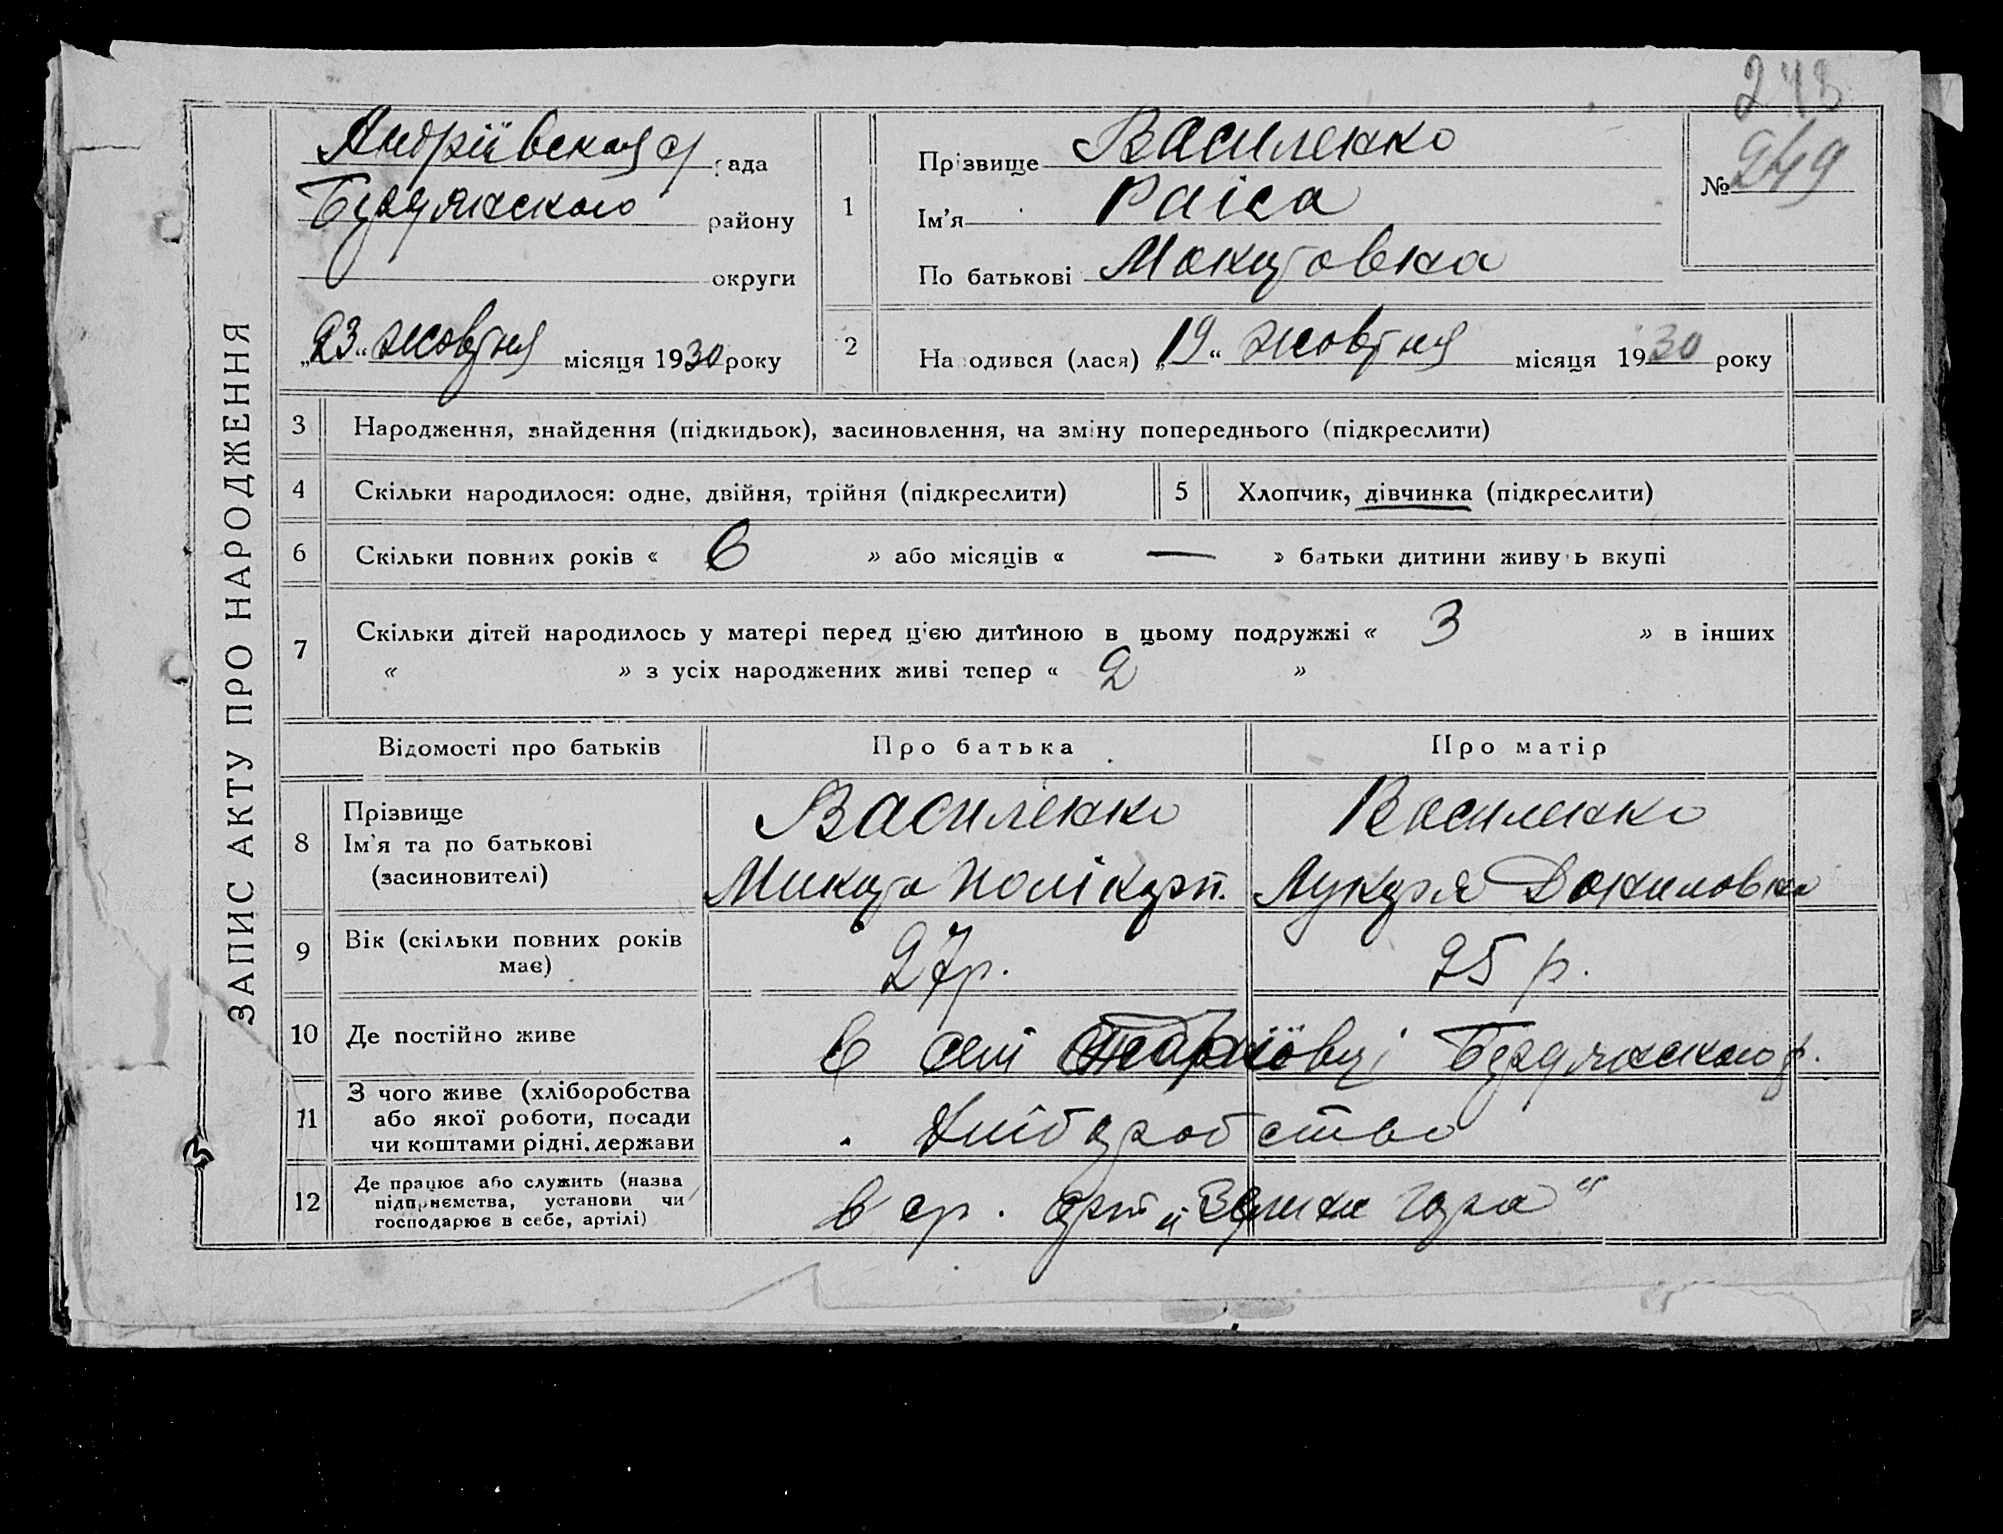 248
ЗАПИС АКТУ ПРО НАРОДЖЕННЯ
Андріївская с/рада
району
округи
„23“ жовтня місяця 1930 року
1
Прізвище Василенко
Ім'я Раіса
По батькові
№ 249
2
Народився (лася) „19“ жовтня місяця 1930 року
3 Народження, знайдення (підкидьок), засиновлення, на зміну попереднього (підкреслити)
4 Скільки народилося: одне, двійня, трійня (підкреслити) 5 Хлопчик, дівчинка (підкреслити)
6 Скільки повних років « 6 » або місяців « — » батьки дитини живуть вкупі
7 Скільки дітей народилось у матері перед цією дитиною в цьому подружжі « 3 » в інших
« » з усіх народжених живі тепер « 2 »
Відомості про батьків Про батька Про матір
8 Прізвище Василенко Василенко
Ім'я та по батькові
(засиновителі) Микита Полікарп. Лукеря Даниловна
9 Вік (скільки повних років 27р. 25 р.
має)
10 Де постійно живе в селі
11 З чого живе (хліборобства
або якої роботи, посади Хліборобство
чи коштами рідні, держави
12 Де працює або служить (назва
підприємства, установи чи в ср. арт. „ гора“
господарює в себе, артілі)